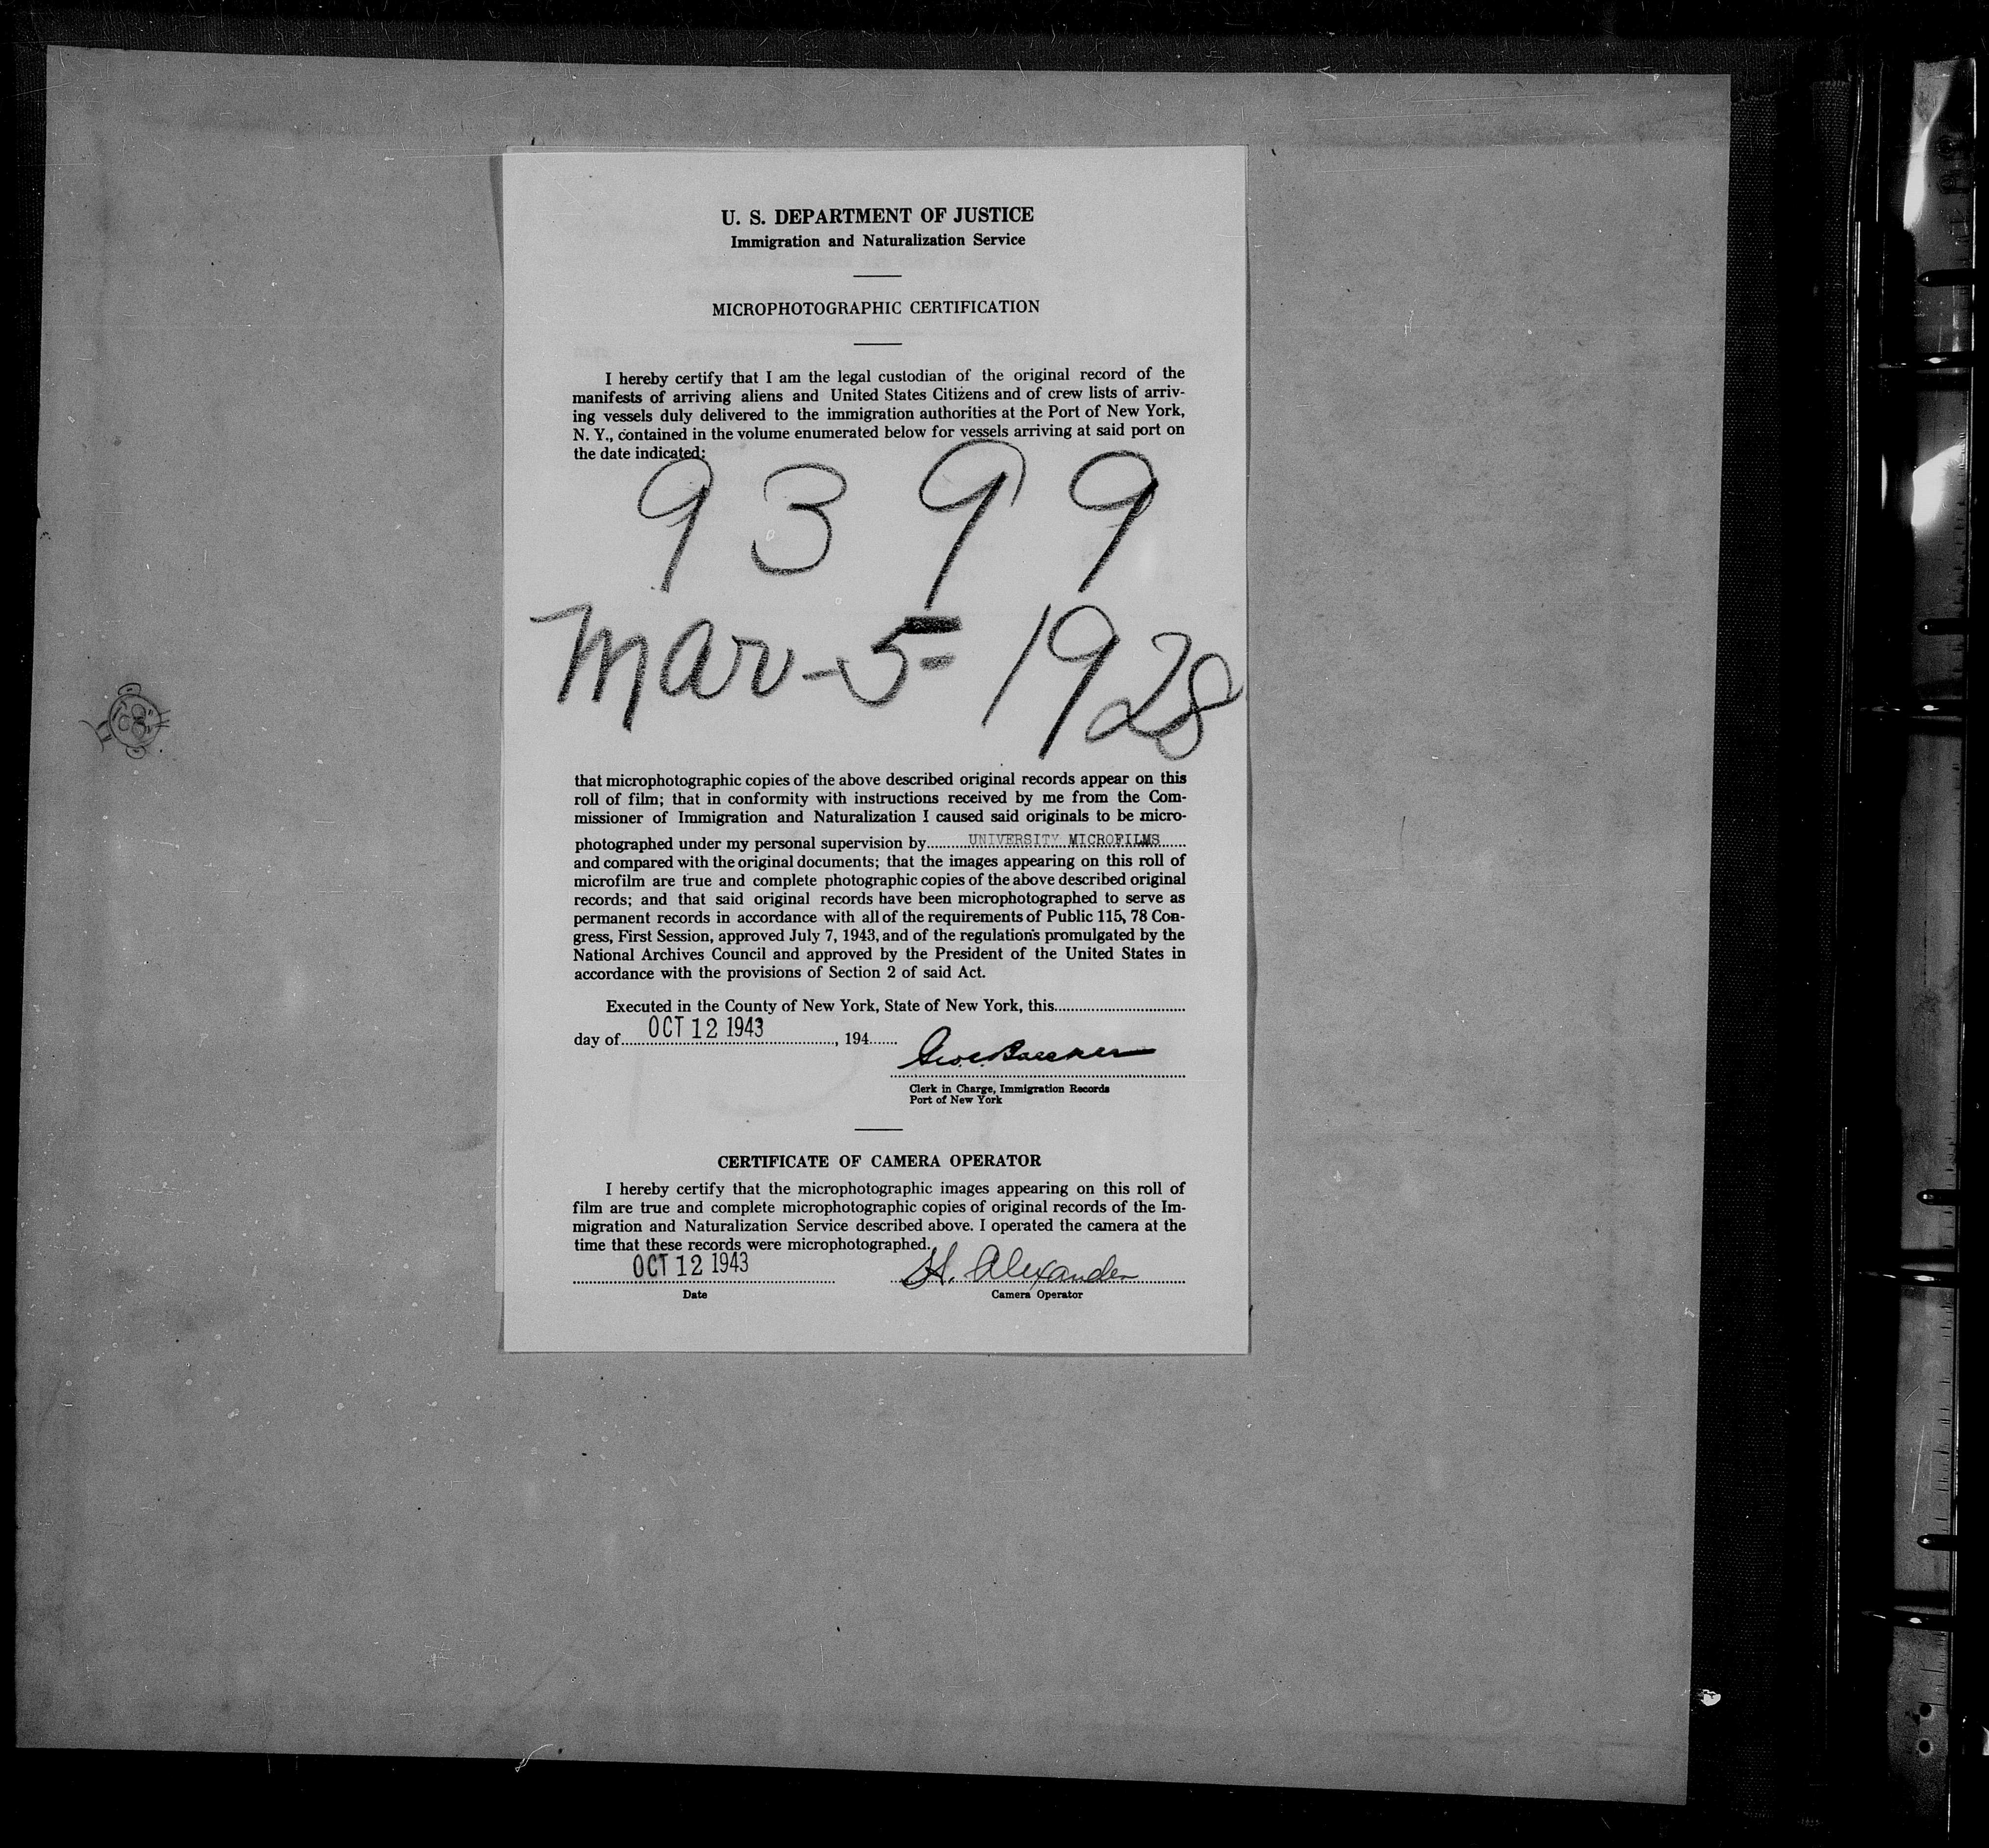 U. S. DEPARTMENT OF JUSTICE
Immigration and Naturalization Service
MICROPHOTOGRAPHIC CERTIFICATION
I hereby certify that I am the legal custodian of the original record of the
manifests of arriving aliens and United States Citizens and of crew lists of arriv-
ing vessels duly delivered to the immigration authorities at the Port of New York,
N. Y., contained in the volume enumerated below for vessels arriving at said port on
the date indicated:
9399
Mar-5-1928
that microphotographic copies of the above described original records appear on this
roll of film; that in conformity with instructions received by me from the Com-
missioner of Immigration and Naturalization I caused said originals to be micro-
photographed under my personal supervision by UNIVERSITY MICROFILMS
and compared with the original documents; that the images appearing on this roll of
microfilm are true and complete photographic copies of the above described original
records; and that said original records have been microphotographed to serve as
permanent records in accordance with all of the requirements of Public 115, 78 Con-
gress, First Session, approved July 7, 1943, and of the regulations promulgated by the
National Archives Council and approved by the President of the United States in
accordance with the provisions of Section 2 of said Act.
Executed in the County of New York, State of New York, this
day of OCT 12 1943, 194
Clerk in Charge, Immigration Records
Port of New York
CERTIFICATE OF CAMERA OPERATOR
I hereby certify that the microphotographic images appearing on this roll of
film are true and complete microphotographic copies of original records of the Im-
migration and Naturalization Service described above. I operated the camera at the
time that these records were microphotographed.
OCT 12 1943 H. Alexander
Date Camera Operator